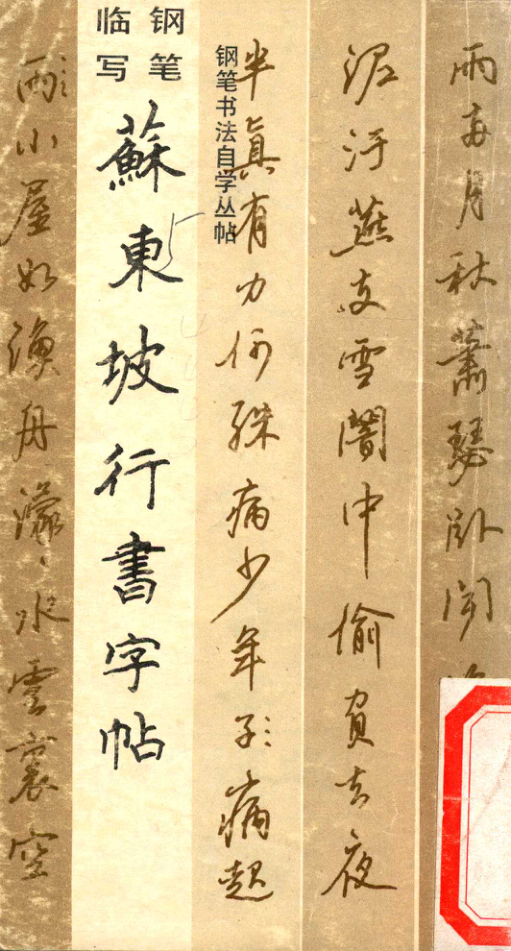 雨兩月秋蕭瑟卧聞
泥汙燕支雪闇中偷負去夜
半真有力何殊病少年子病起
钢笔书法自学丛帖
钢笔
临写
蘇東坡行書字帖
雨小屋如漁舟濛水雲裏空